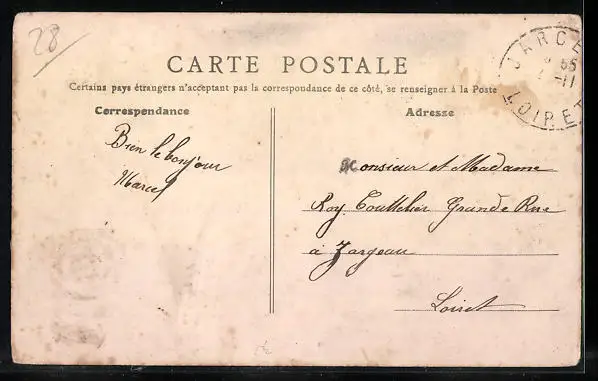 28
CARTE POSTALE
Certains pays étrangers n'acceptant pas la correspondance de ce côté, se renseigner à la Poste
Correspondance
Adresse
Bien le bonjour
Marcel
Monsieur et Madame
Roy Grande Rue
à Jargeau
Loiret
LOIRET